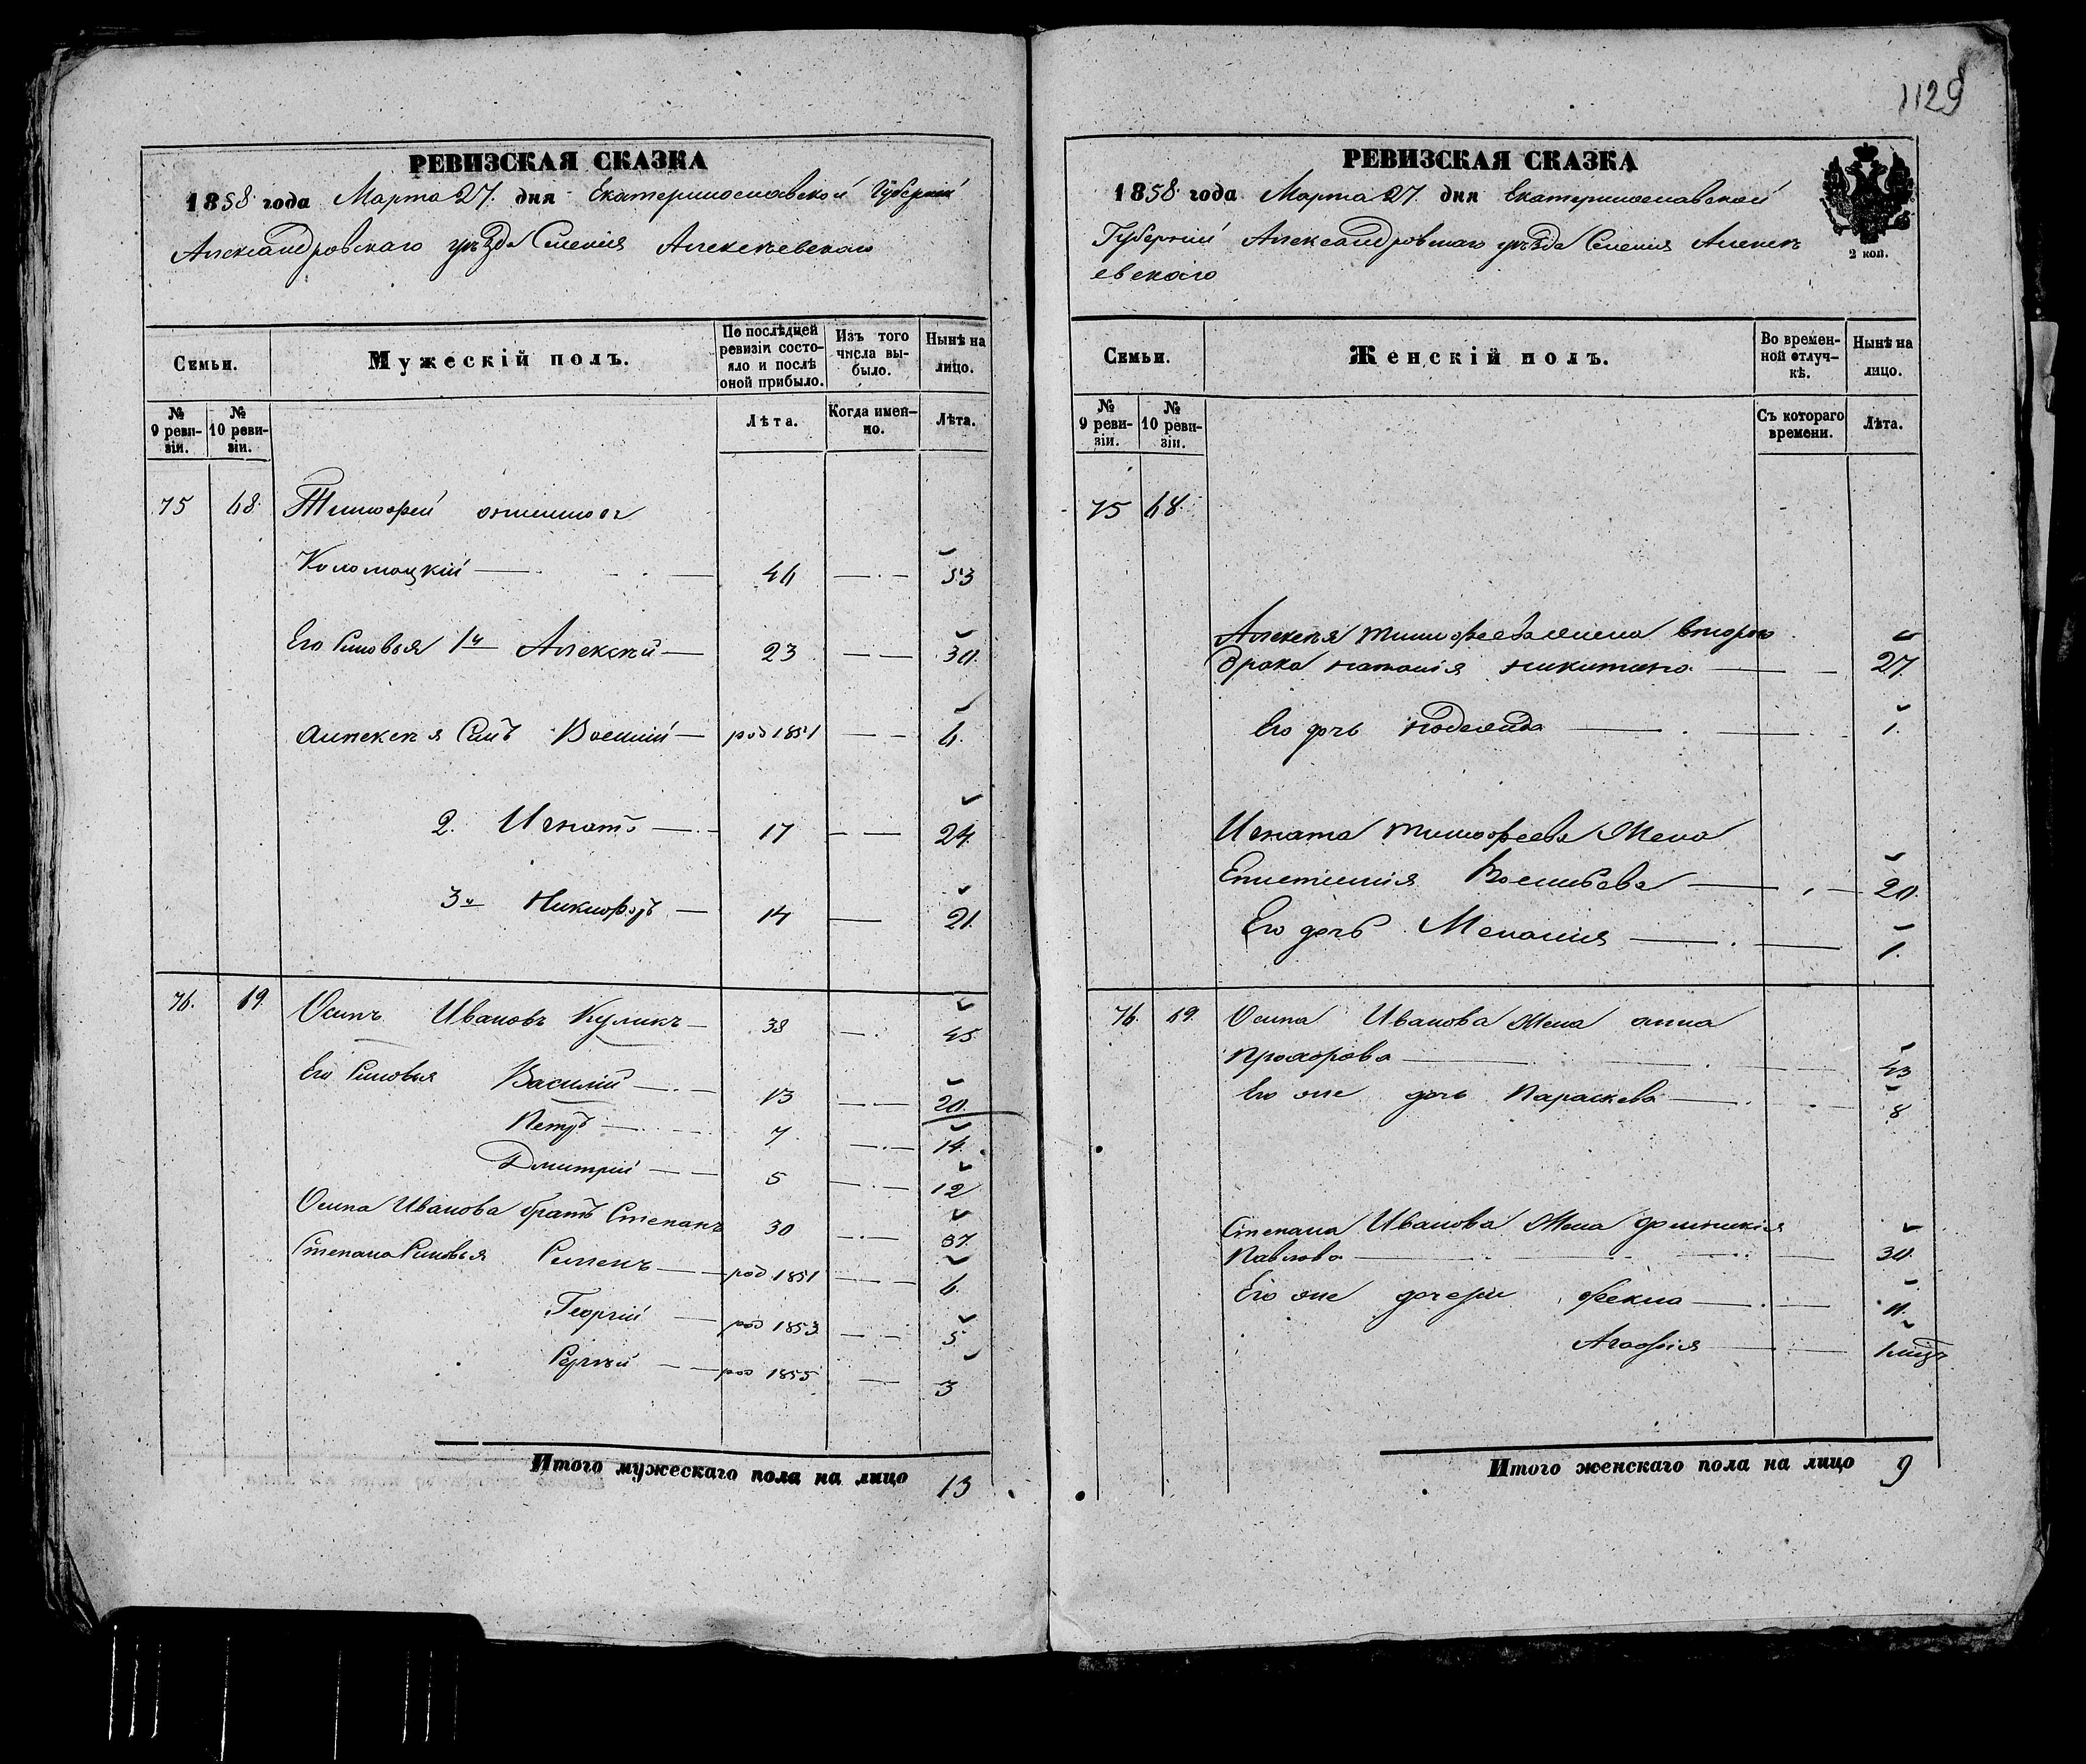 1129
РЕВИЗСКАЯ СКАЗКА
1858 года Марта 27. дня Екатеринославской Губерніи
Александровскаго уѣзда Селенія Алексѣевскаго
Семьи.
Мужескій полъ.
По послѣдней ревизіи состояло и послѣ оной прибыло.
Изъ того числа выбыло.
Нынѣ на лицо.
№ 9 ревизіи.
№ 10 ревизіи.
Лѣта.
Когда именно.
Лѣта.
75 68. Тимофей
Коломоцкій 46 53
Его Сыновья 1й Алексѣй 23 30.
Алексѣя Сынъ Василій род 1851 6.
2. Игнатъ 17 24.
3й Никифоръ 14 21.
76. 69. Осипъ Ивановъ Куликъ 38 45
Его Сыновья Василій 13 20.
Петръ 7 14.
Дмитрій 5 12
Осипа Иванова братъ Степанъ 30 37.
Степана Сыновья Семенъ род 1851 6.
Георгій род 1853 5
Сергѣй род 1855 3
Итого мужескаго пола на лицо 13
РЕВИЗСКАЯ СКАЗКА
1858 года Марта 27. дня Екатеринославской
Губерніи Александровскаго уѣзда Селенія Алексѣ
евскаго
2 коп.
Семьи.
Женскій полъ.
Во временной отлучкѣ.
Нынѣ на лицо.
№ 9 ревизіи.
№ 10 ревизіи.
Съ котораго времени.
Лѣта.
75 68.
Алексѣя Тимофеева жена второго
брака Наталія Никитина 27.
Его дочь Надежда 1.
Игната Тимофеева Жена
Епистимія Васильева 20.
Его дочь Меланія 1.
76. 69. Осипа Иванова Жена Анна
Прохорова 43
Его же дочь Параскева 8
Степана Иванова Жена Домникія
Павлова 30.
Его же дочери Фекла 11.
Агафія 1 мѣц
Итого женскаго пола на лицо 9